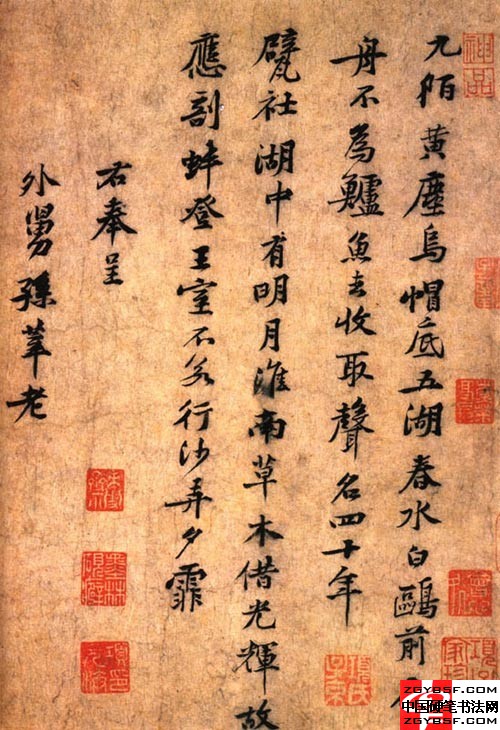 九陌黃塵烏帽底五湖春水白鷗前
舟不為鱸魚去收取聲名四十年
甓社湖中有明月淮南草木借光輝故
應剖蚌登王室不若行沙弄夕霏
右奉呈
外舅孫莘老
神品
項氏子京
ZGYBSF.COM
中国硬笔书法网
ZGYBSF.COM